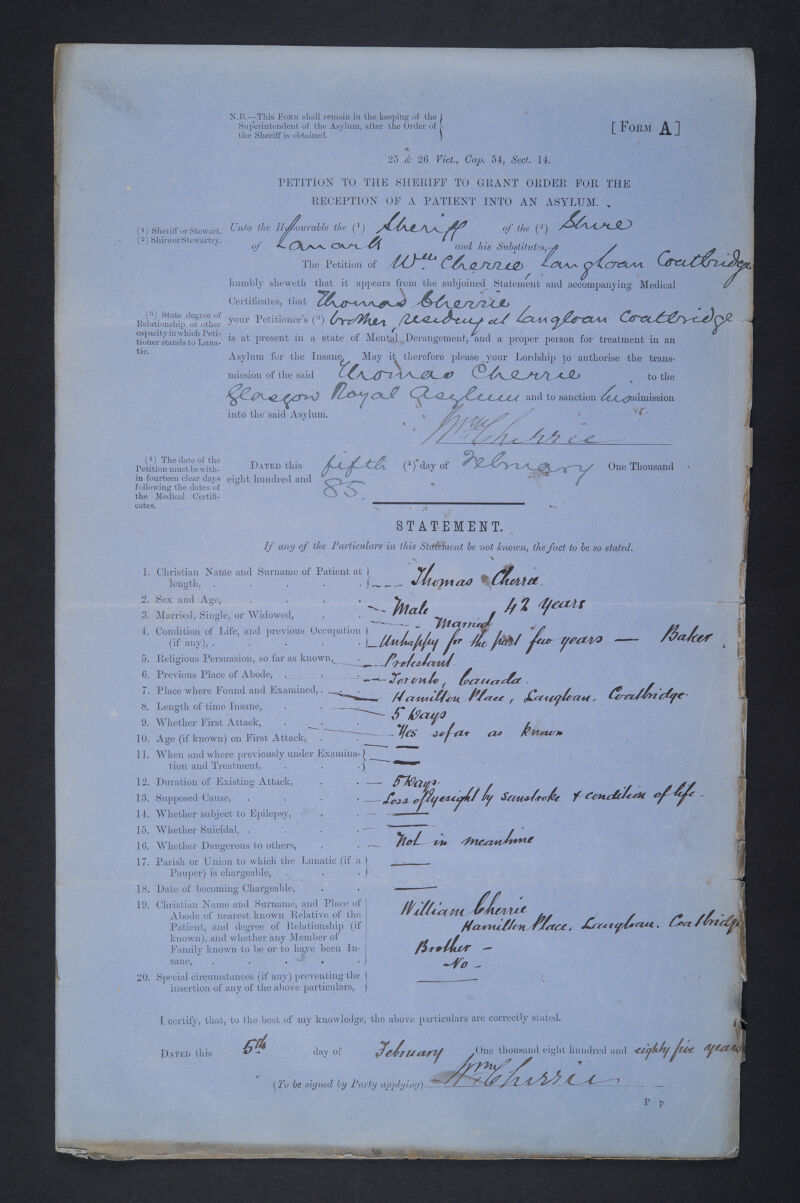 N.B.—This Form shall remain in the keeping of the
Superintendent of the Asylum, after the Order of
the Sheriff is obtained.
[ Form A ]
25 & 26 Vict., Cap. 54, Sect. 14.
PETITION TO THE SHERIFF TO GRANT ORDER FOR THE
RECEPTION OF A PATIENT INTO AN ASYLUM.
(1) Sheriff or Stewart.
(2) Shire or Stewartry.
Unto the Honourable the (1) Sheriff of the (2) Shire
of Lanark and his Substitutes,—
The Petition of Wm Cherrie, Langloan Coatbridge
humbly sheweth that it appears from the subjoined Statement and accompanying Medical
Certificates, that Thomas Cherrie
(3) State degree of
Relationship or other
capacity in which Peti-
tioner stands to Luna-
tic.
your Petitioner's (3) brother, residing at Langloan Coatbridge
is at present in a state of Mental Derangement, and a proper person for treatment in an
Asylum for the Insane. May it therefore please your Lordship to authorise the trans-
mission of the said Thomas Cherrie to the
Glasgow Royal Asylum and to sanction his admission
into the said Asylum.
Wm Cherrie
(4) The date of the
Petition must be with-
in fourteen clear days
following the dates of
the Medical Certifi-
cates.
Dated this fifth (4) day of February One Thousand
eight hundred and 85.
STATEMENT.
If any of the Particulars in this Statement be not known, the fact to be so stated.
1. Christian Name and Surname of Patient at
length, . Thomas Cherrie.
2. Sex and Age, Male 42 Years
3. Married, Single, or Widowed, Married
4. Condition of Life, and previous Occupation
(if any), . Unhappy for the past few years — Baker
5. Religious Persuasion, so far as known, Protestant
6. Previous Place of Abode, Toronto, Canada.
7. Place where Found and Examined, Hamilton Place, Langloan, Coatbridge
8. Length of time Insane, 5 Days
9. Whether First Attack, Yes so far as known
10. Age (if known) on First Attack, —
11. When and where previously under Examina-
tion and Treatment, —
12. Duration of Existing Attack, 5 Days.
13. Supposed Cause, Loss of Eyesight by Sunstroke & condition of life.
14. Whether subject to Epilepsy, —
15. Whether Suicidal, —
16. Whether Dangerous to others, Not in meantime
17. Parish or Union to which the Lunatic (if a
Pauper) is chargeable, —
18. Date of becoming Chargeable, —
19. Christian Name and Surname, and Place of
Abode of nearest known Relative of the
Patient, and degree of Relationship (if
known), and whether any Member of
Family known to be or to have been In-
sane,
William Cherrie
Hamilton Place, Langloan, Coatbridge
Brother —
No —
20. Special circumstances (if any) preventing the
insertion of any of the above particulars, —
I certify, that, to the best of my knowledge, the above particulars are correctly stated.
Dated this 5th day of February One thousand eight hundred and eighty five years
(To be signed by Party applying) Wm Cherrie
P p